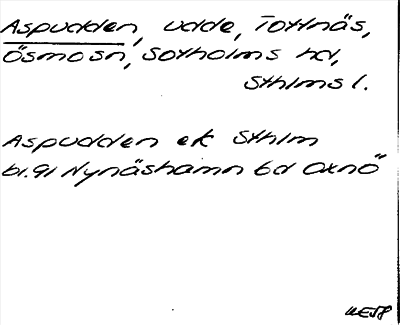 Aspudden, udde, Tottnäs,
Ösmo sn, Sotholms hd,
Sthlms l.
Aspudden ek Sthlm
bl.91 Nynäshamn 6d Oxnö